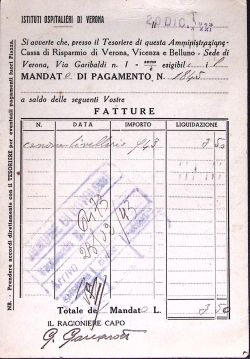 ISTITUTI OSPITALIERI DI VERONA
Si avverte che, presso il Tesoriere di questa Amministrazione-
Cassa di Risparmio di Verona, Vicenza e Belluno - Sede di
Verona, Via Garibaldi n. 1 - esigibile il
MANDATO DI PAGAMENTO N. 1845
a saldo delle seguenti Vostre
FATTURE
N. DATA IMPORTO LIQUIDAZIONE
canone livellario 943 3 50
28/12/43
Totale del Mandato L. 3.50
IL RAGIONIERE CAPO
NB. - Prendere accordi direttamente con il TESORIERE per eventuali pagamenti fuori Piazza.